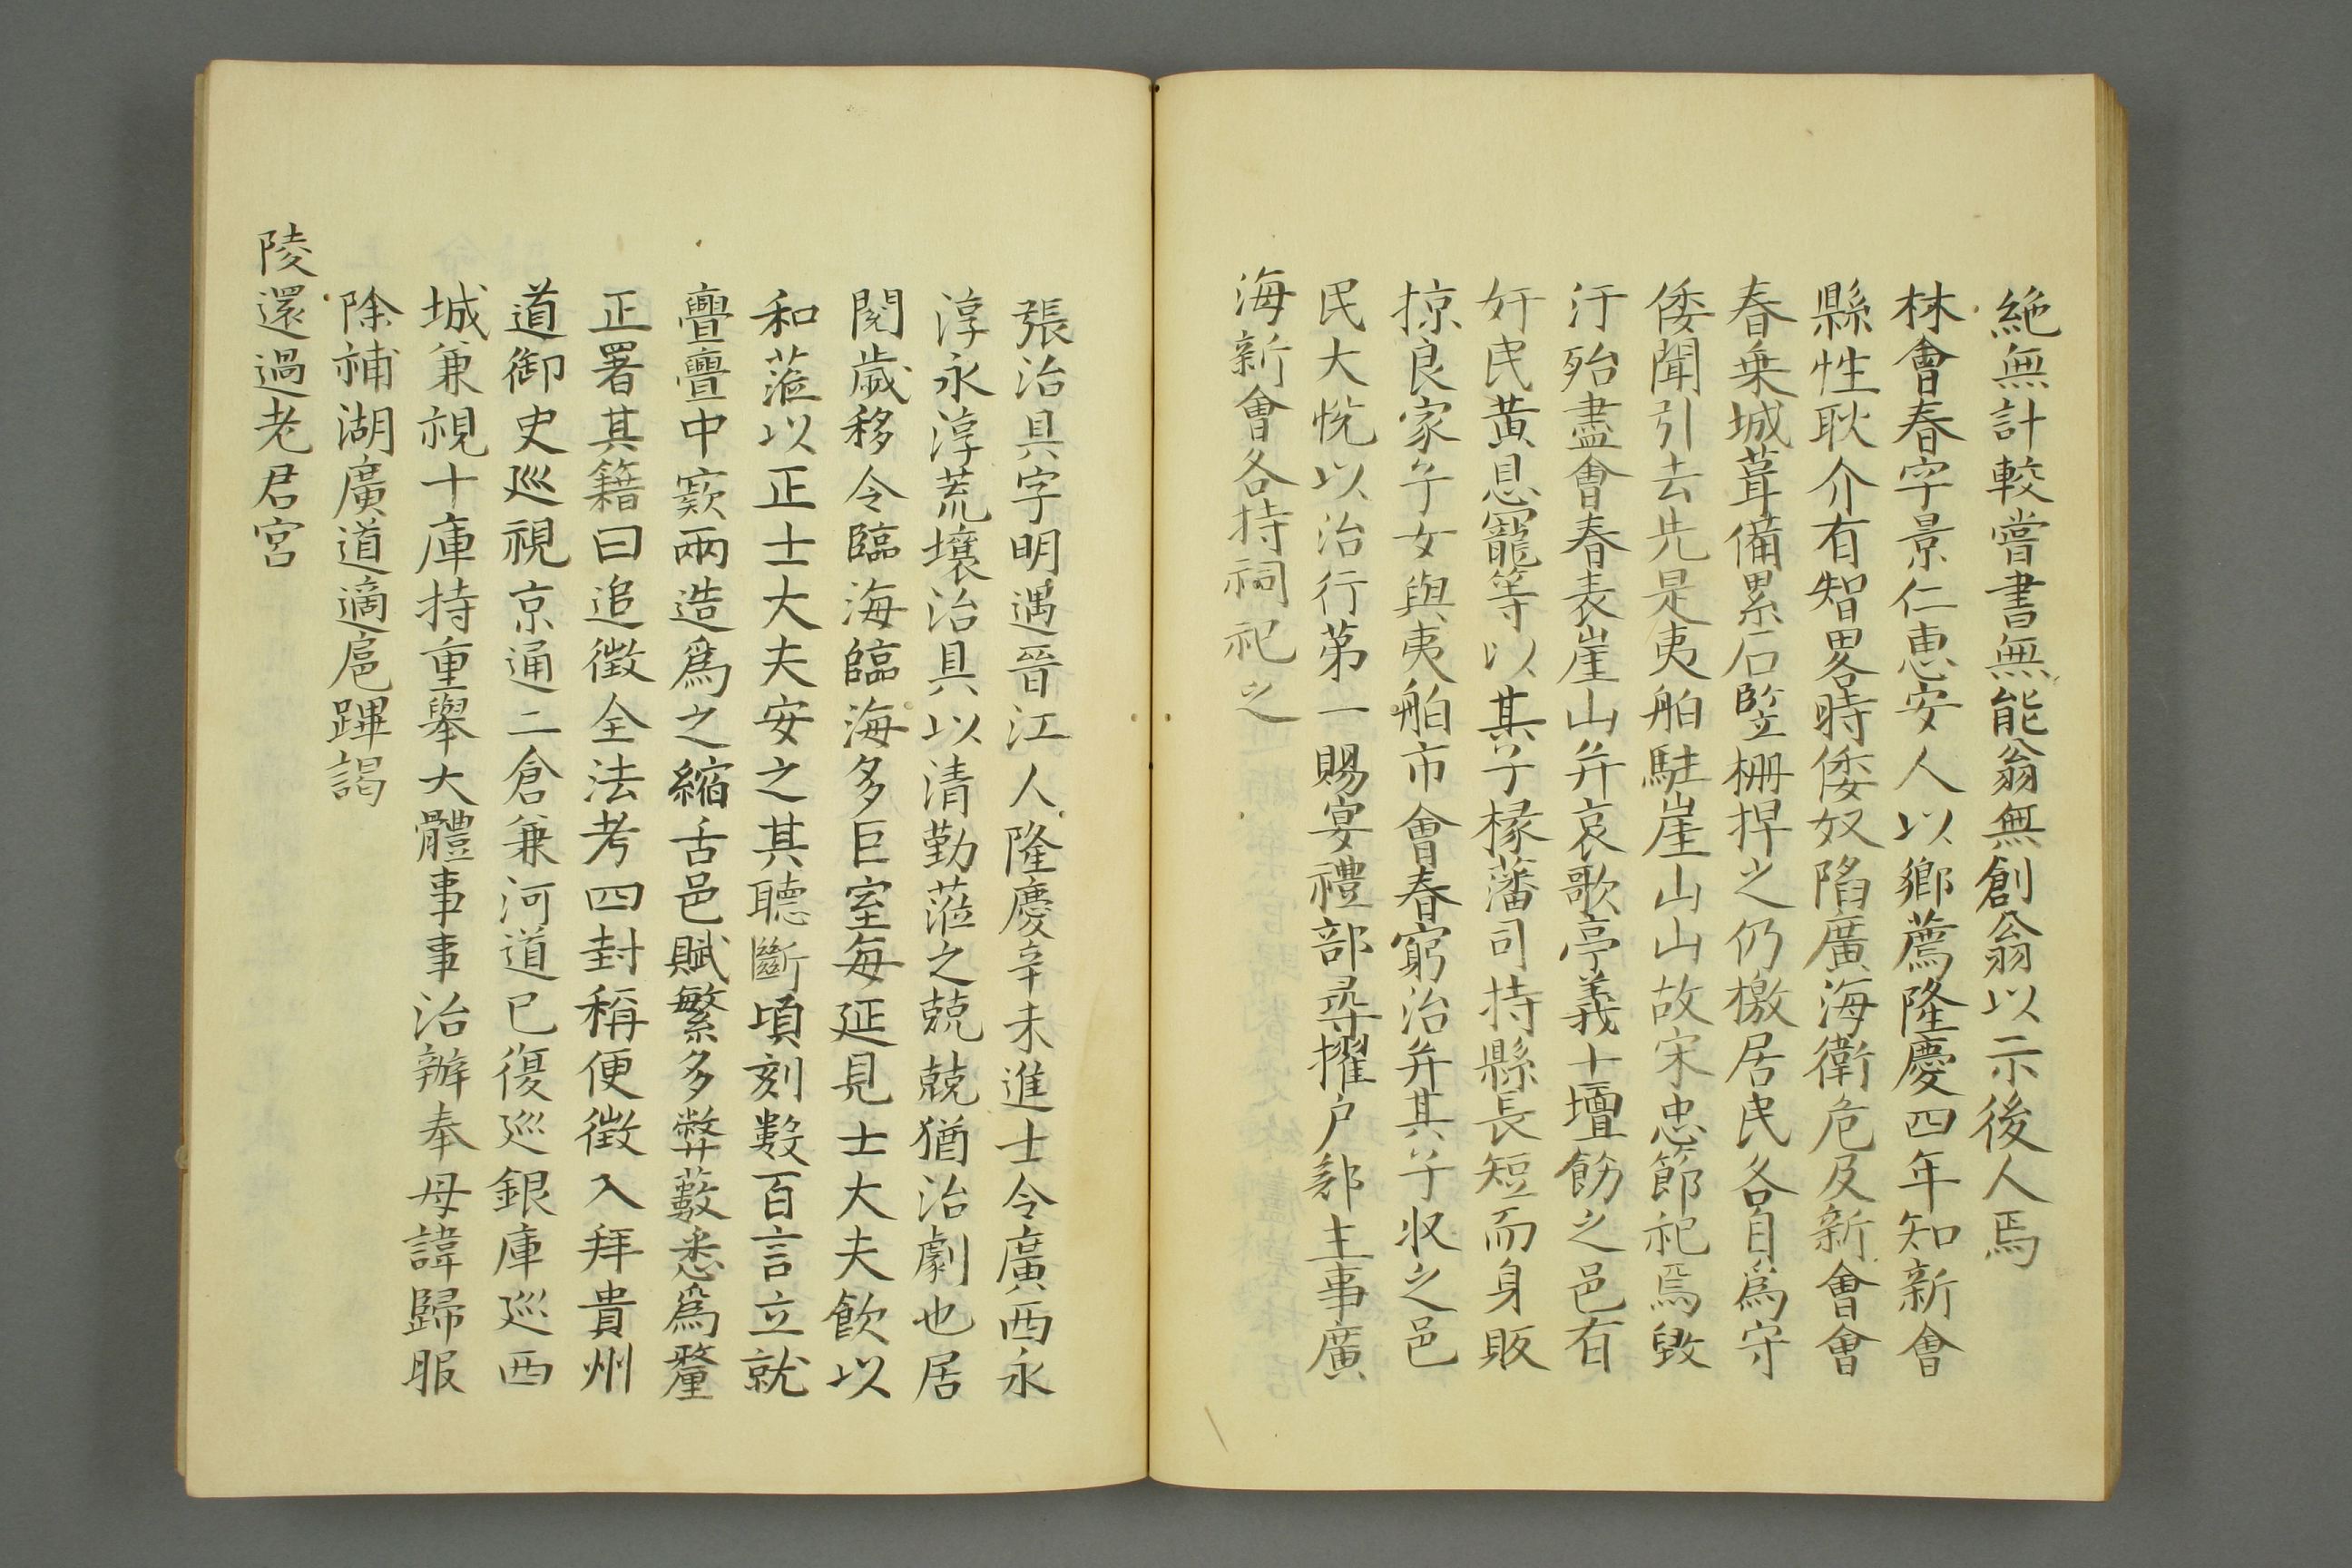 絶無計較嘗書無能翁無創翁以示後人焉
林會春字景仁惠安人以鄉薦隆慶四年知新會
縣性耿介有智畧時倭奴陷廣海衛危及新會會
春乗城葺備累石竪柵捍之仍檄居民各自爲守
倭聞引去先是夷舶駐崖山山故宋忠節祀焉毀
汙殆盡會春表崖山并哀歌亭義士壇飭之邑有
奸民黃息寵等以其子掾藩司持縣長短而身販
掠良家子女與夷舶市會春窮治并其子收之邑
民大悅以治行第一賜宴禮部尋擢户部主事廣
海新會各持祠祀之
張治具字明遇晉江人隆慶辛未進士令廣西永
淳永淳荒壤治具以清勤蒞之兢兢猶治劇也居
閱歲移令臨海臨海多巨室每延見士大夫飲以
和蒞以正士大夫安之其聽斷頃刻數百言立就
亹亹中窾兩造爲之縮舌邑賦繁多弊藪悉爲釐
正署其籍曰追徵全法考四封稱便徵入拜貴州
道御史巡視京通二倉兼河道已復巡銀庫巡西
城兼視十庫持重舉大體事事治辦奉母諱歸服
除補湖廣道適扈蹕謁
陵還過老君宮